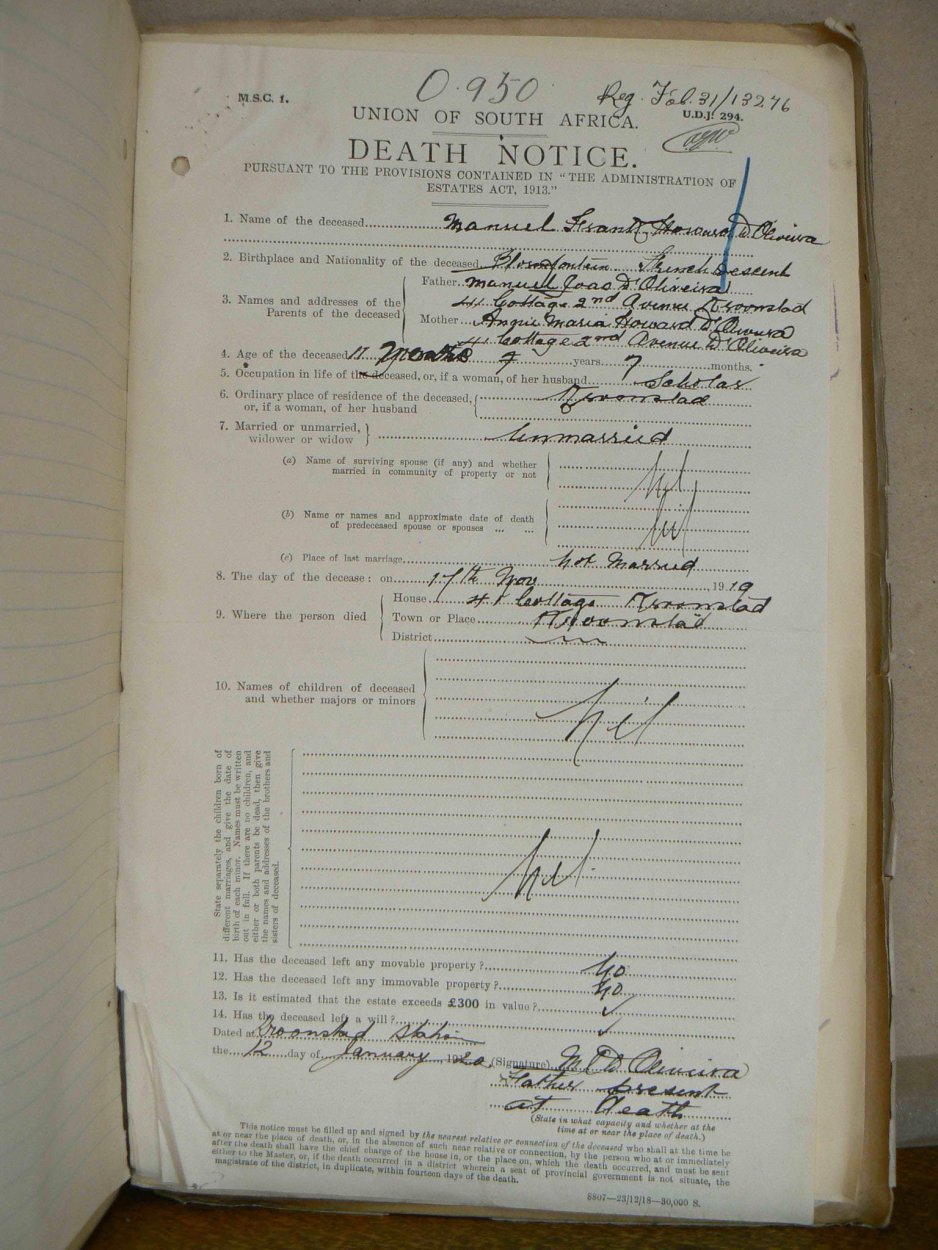 M.S.C. 1.
O.950
Reg. Feb. 31/13276
UNION OF SOUTH AFRICA.
U.D.J. 294.
DEATH NOTICE.
PURSUANT TO THE PROVISIONS CONTAINED IN "THE ADMINISTRATION OF
ESTATES ACT, 1913."
1. Name of the deceased Manuel Frank Howard D'Oliveira
2. Birthplace and Nationality of the deceased Bloemfontein French Descent
3. Names and addresses of the Parents of the deceased
Father Manuel Joao D'Oliveira
41 Cottage 2nd Avenue Kroonstad
Mother Angie Maria Howard D'Oliveira
41 Cottage 2nd Avenue D'Oliveira
4. Age of the deceased 11 Months 7 years 7 months.
5. Occupation in life of the deceased, or, if a woman, of her husband Scholar
6. Ordinary place of residence of the deceased, Kroonstad
or, if a woman, of her husband
7. Married or unmarried, widower or widow Unmarried
(a) Name of surviving spouse (if any) and whether
married in community of property or not Nil
(b) Name or names and approximate date of death
of predeceased spouse or spouses ... ... Nil
(c) Place of last marriage Not Married
8. The day of the decease: on 17th Nov 1919
9. Where the person died
House 41 Cottage Kroonstad
Town or Place Kroonstad
District
10. Names of children of deceased
and whether majors or minors Nil
State separately the children born of
different marriages, and give the date of
birth of each minor. Names must be written
out in full. If there are no children, and
either or both parents be dead, then give
the names and addresses of the brothers and
sisters of deceased.
Nil
11. Has the deceased left any movable property? No
12. Has the deceased left any immovable property? No
13. Is it estimated that the estate exceeds £300 in value? ✓
14. Has the deceased left a will? ✓
Dated at Kroonstad Station
the 12 day of January 1920, (Signature) M J D'Oliveira
Father present
at death
(State in what capacity and whether at the
time at or near the place of death.)
This notice must be filled up and signed by the nearest relative or connection of the deceased who shall at the time be
at or near the place of death, or, in the absence of such near relative or connection, by the person who at or immediately
after the death shall have the chief charge of the house in, or the place on, which the death occurred, and must be sent
either to the Master, or, if the death occurred in a district wherein a seat of provincial government is not situate, the
magistrate of the district, in duplicate, within fourteen days of the death.
8807—23/12/18—30,000 S.